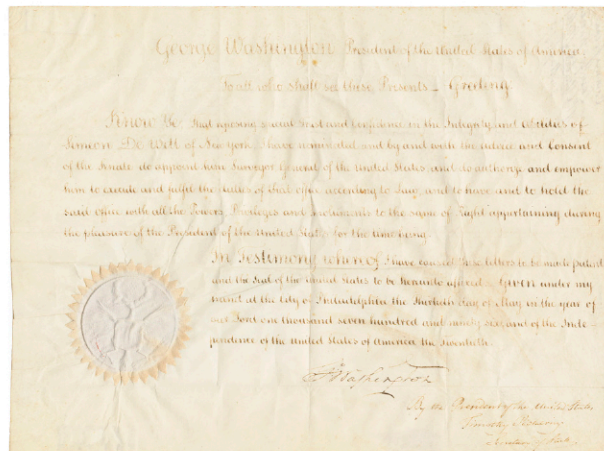 George Washington President of the United States of America
To all who shall see these Presents – Greeting
Know Ye that reposing special Trust and Confidence in the Integrity and Abilities of
Simeon De Witt of New York I have nominated and by and with the Advice and Consent
of the Senate do appoint him Surveyor General of the United States and do authorize and empower
him to execute and fulfil the duties of that office according to Law, and to have and to hold the
said office with all the Powers, Privileges and Emoluments to the same of Right appertaining during
the pleasure of the President of the United States for the time being.
In Testimony whereof I have caused these letters to be made patent
and the Seal of the united States to be hereunto affixed. Given under my
hand at the City of Philadelphia the day of May in the year of
our Lord one thousand seven hundred and ninety six, and of the Inde-
pendence of the United States of America the Twentieth.
G Washington
By the President of the United States
Timothy Pickering
Secretary of State